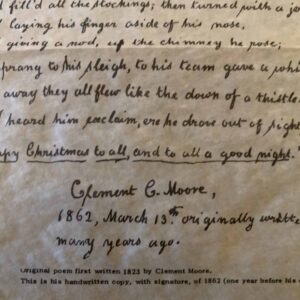 fill'd all the stockings; then turned with a je
laying his finger aside of his nose,
giving a nod, up the chimney he rose;
sprang to his sleigh, to his team gave a whis
away they all flew like the down of a thistle
heard him exclaim, ere he drove out of sigh
ppy Christmas to all, and to all a good night."
Clement C. Moore,
1862, March 13th originally writte
many years ago.
Original poem first written 1823 by Clement Moore.
This is his handwritten copy, with signature, of 1862 (one year before his